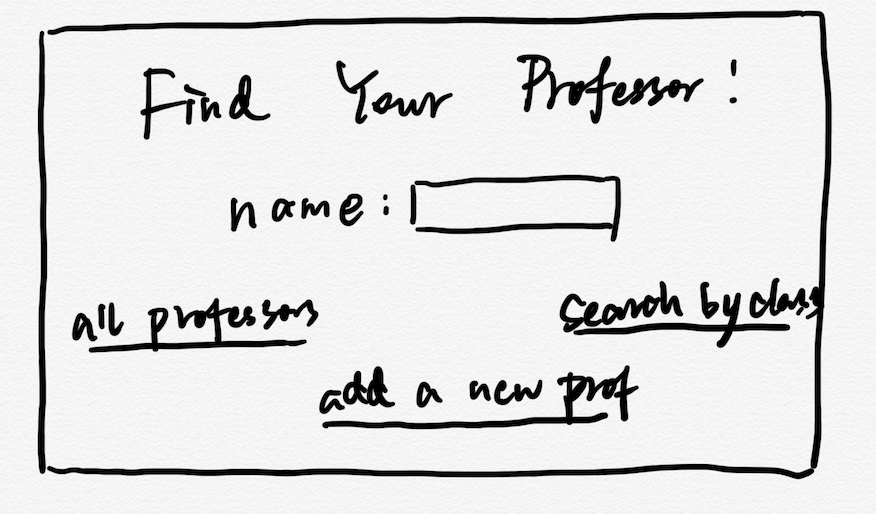 Find Your Professor!
name:
all professors
search by class
add a new prof